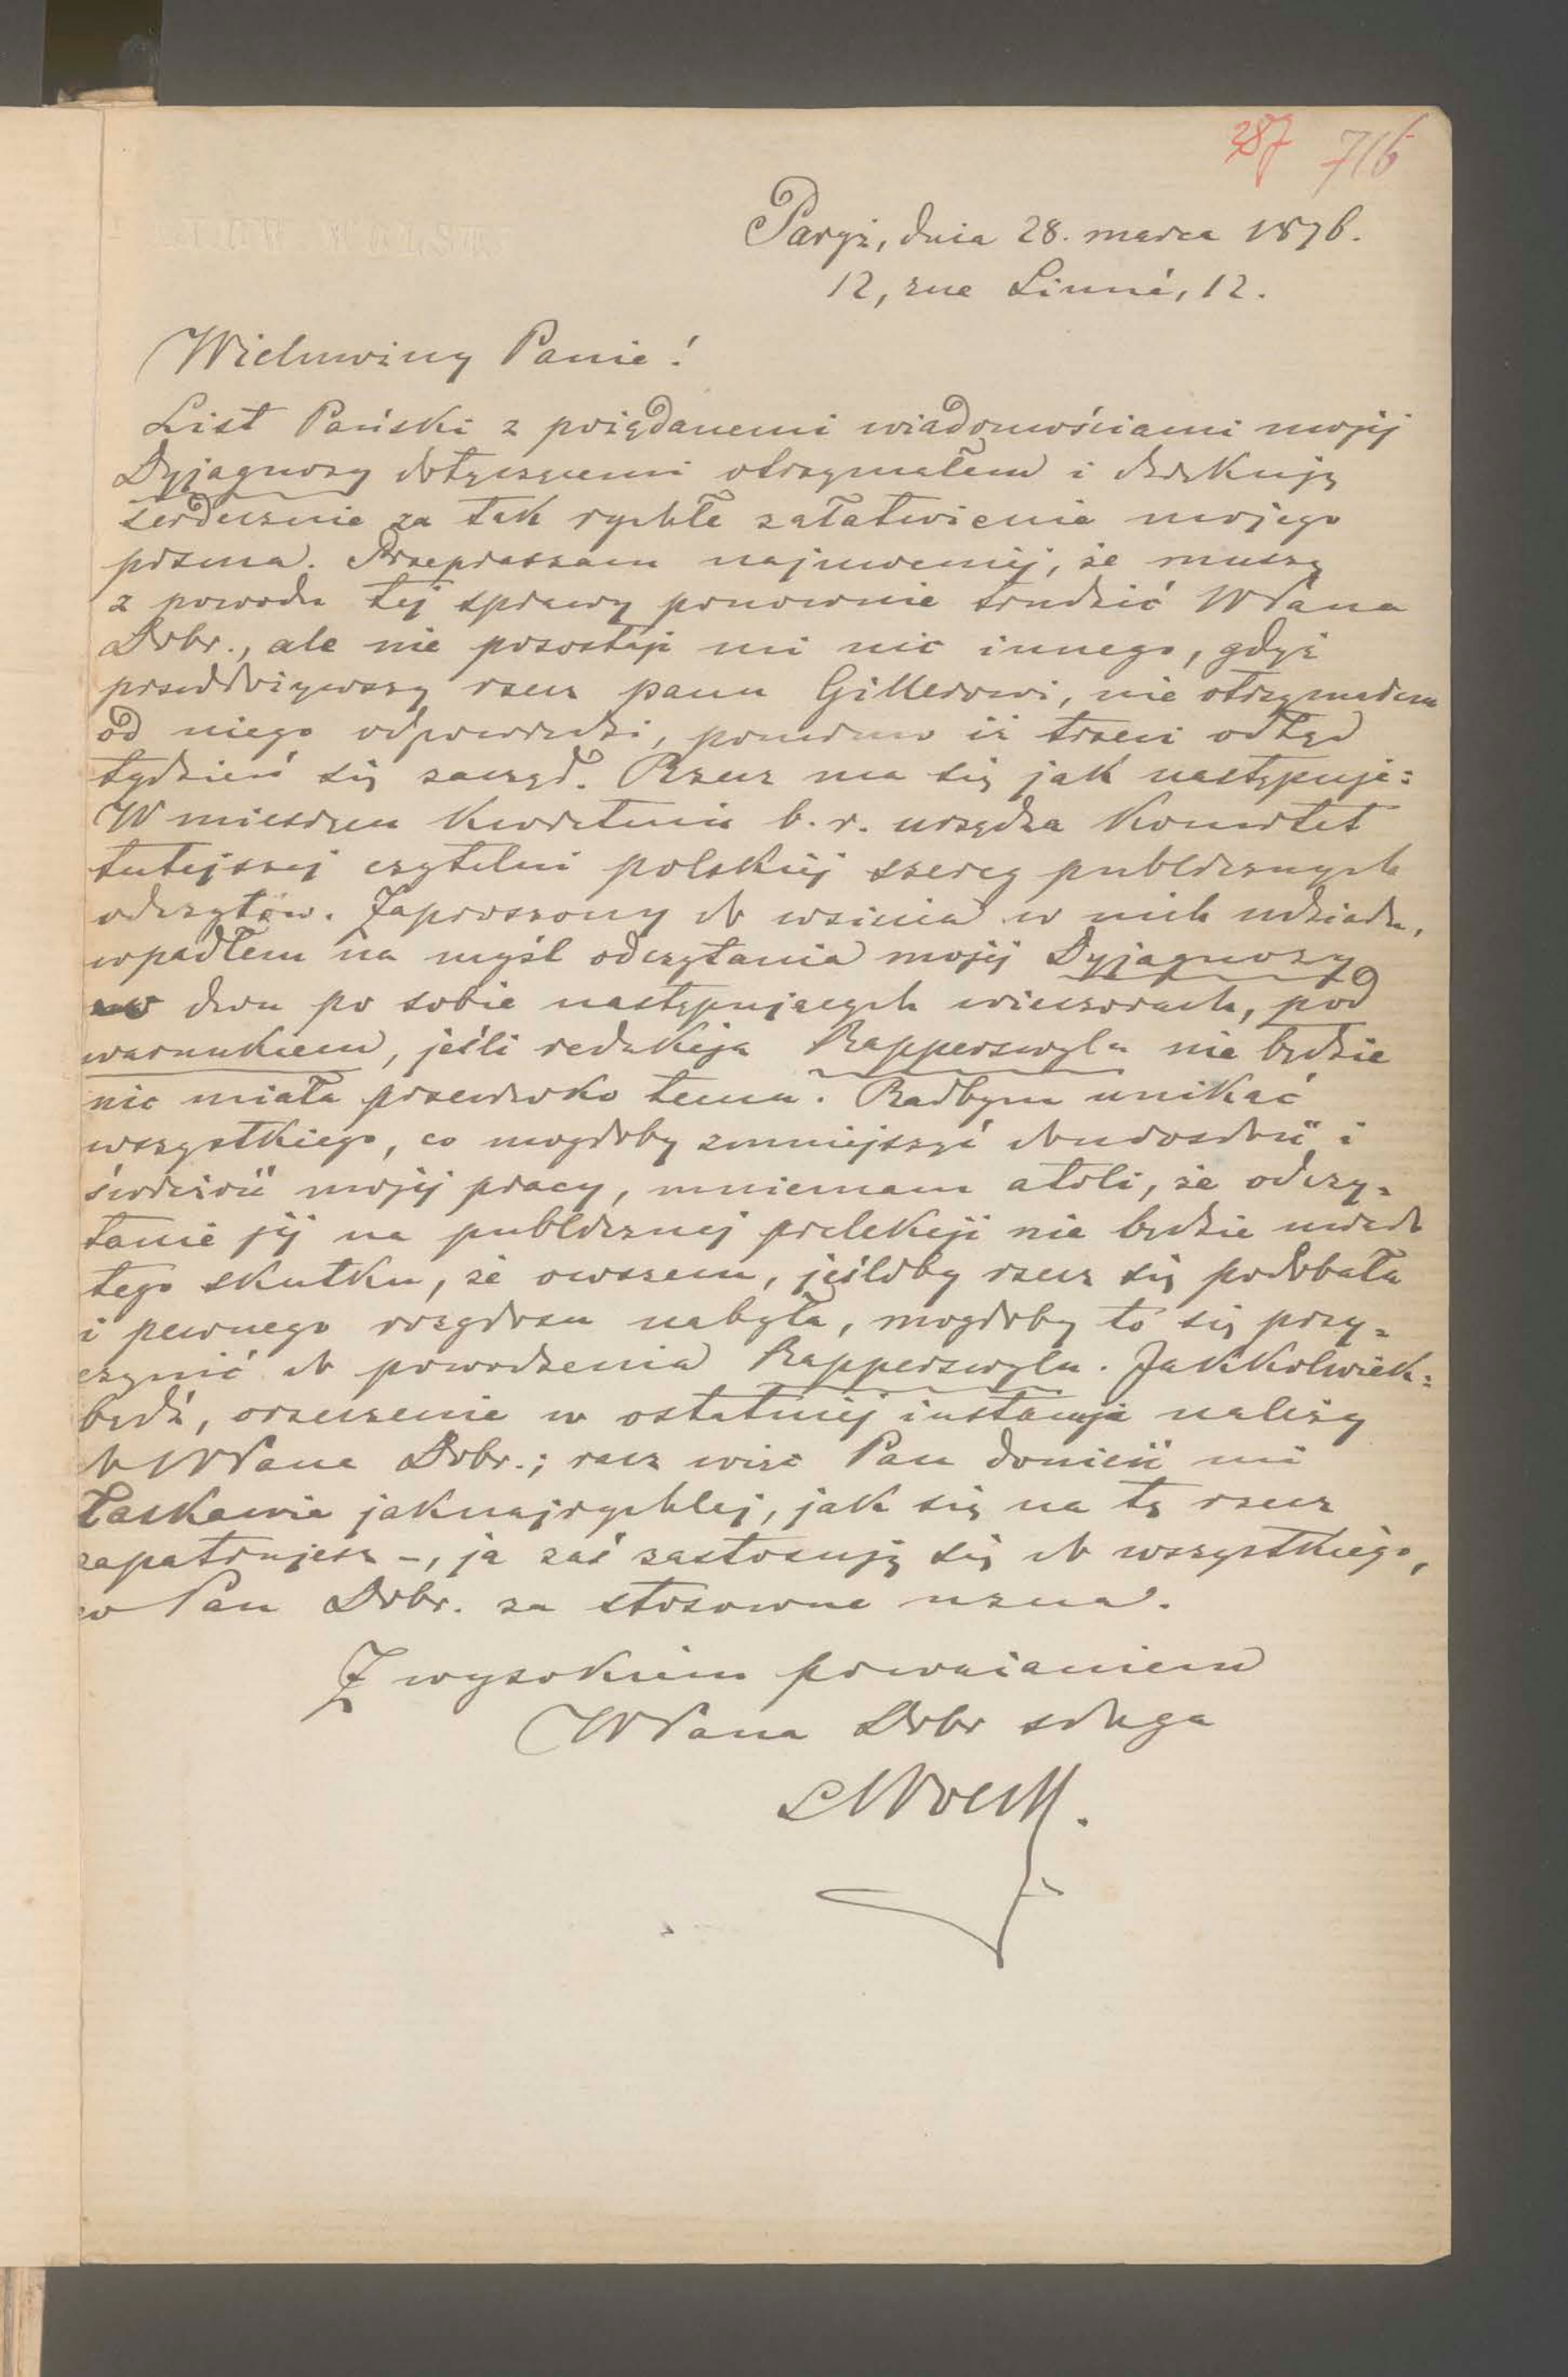 287 716
Paryż, dnia 28. marca 1876.
12, rue Linné, 12.
Wielmożny Panie!
List Pański z pożądanemi wiadomościami mojéj
Dyjagnozy dotyczącemi otrzymałem i dziękuję
serdecznie za tak rychłe załatwienie mojego
pisma. Przepraszam najmocniéj, że muszę
z powodu téj sprawy ponownie trudzić WPana
Dobr., ale nie pozostaje mi nic innego, gdyż
przedłożywszy rzecz panu Gillerowi, nie otrzymałem
od niego odpowiedzi, pomimo iż trzeci odtąd
tydzień się zaczął. Rzecz ma się jak następuje:
W miesiącu kwietniu b. r. urządza Komitet
tutejszej czytelni polskiéj szereg publicznych
odczytów. Zaproszony do wzięcia w nich udziału,
wpadłem na myśl odczytania mojéj Dyjagnozy
w dwu po sobie następujących wieczorach, pod
warunkiem, jeśli redakcja Rapperswylu nie będzie
nic miała przeciwko temu. Radbym unikać
wszystkiego, co mogłoby zmniejszyć doniosłość i
świeżość mojéj pracy, mniemam atoli, że odczy-
tanie jéj na publicznej prelekcji nie będzie miało
tego skutku, że owszem, jeśliby rzecz się podobała
i pewnego rozgłosu nabyła, mogłoby to się przy-
czynić do powodzenia Rapperswylu. Jakkolwiek-
bądź, orzeczenie w ostatniéj instancji należy
do WPana Dobr.; racz więc Pan donieść mi
łaskawie jaknajrychlej, jak się na tę rzecz
zapatrujesz -, ja zaś zastosuję się do wszystkiego,
co Pan Dobr. za stosowne uzna.
Z wysokiem poważaniem
WPana Dobr sługa